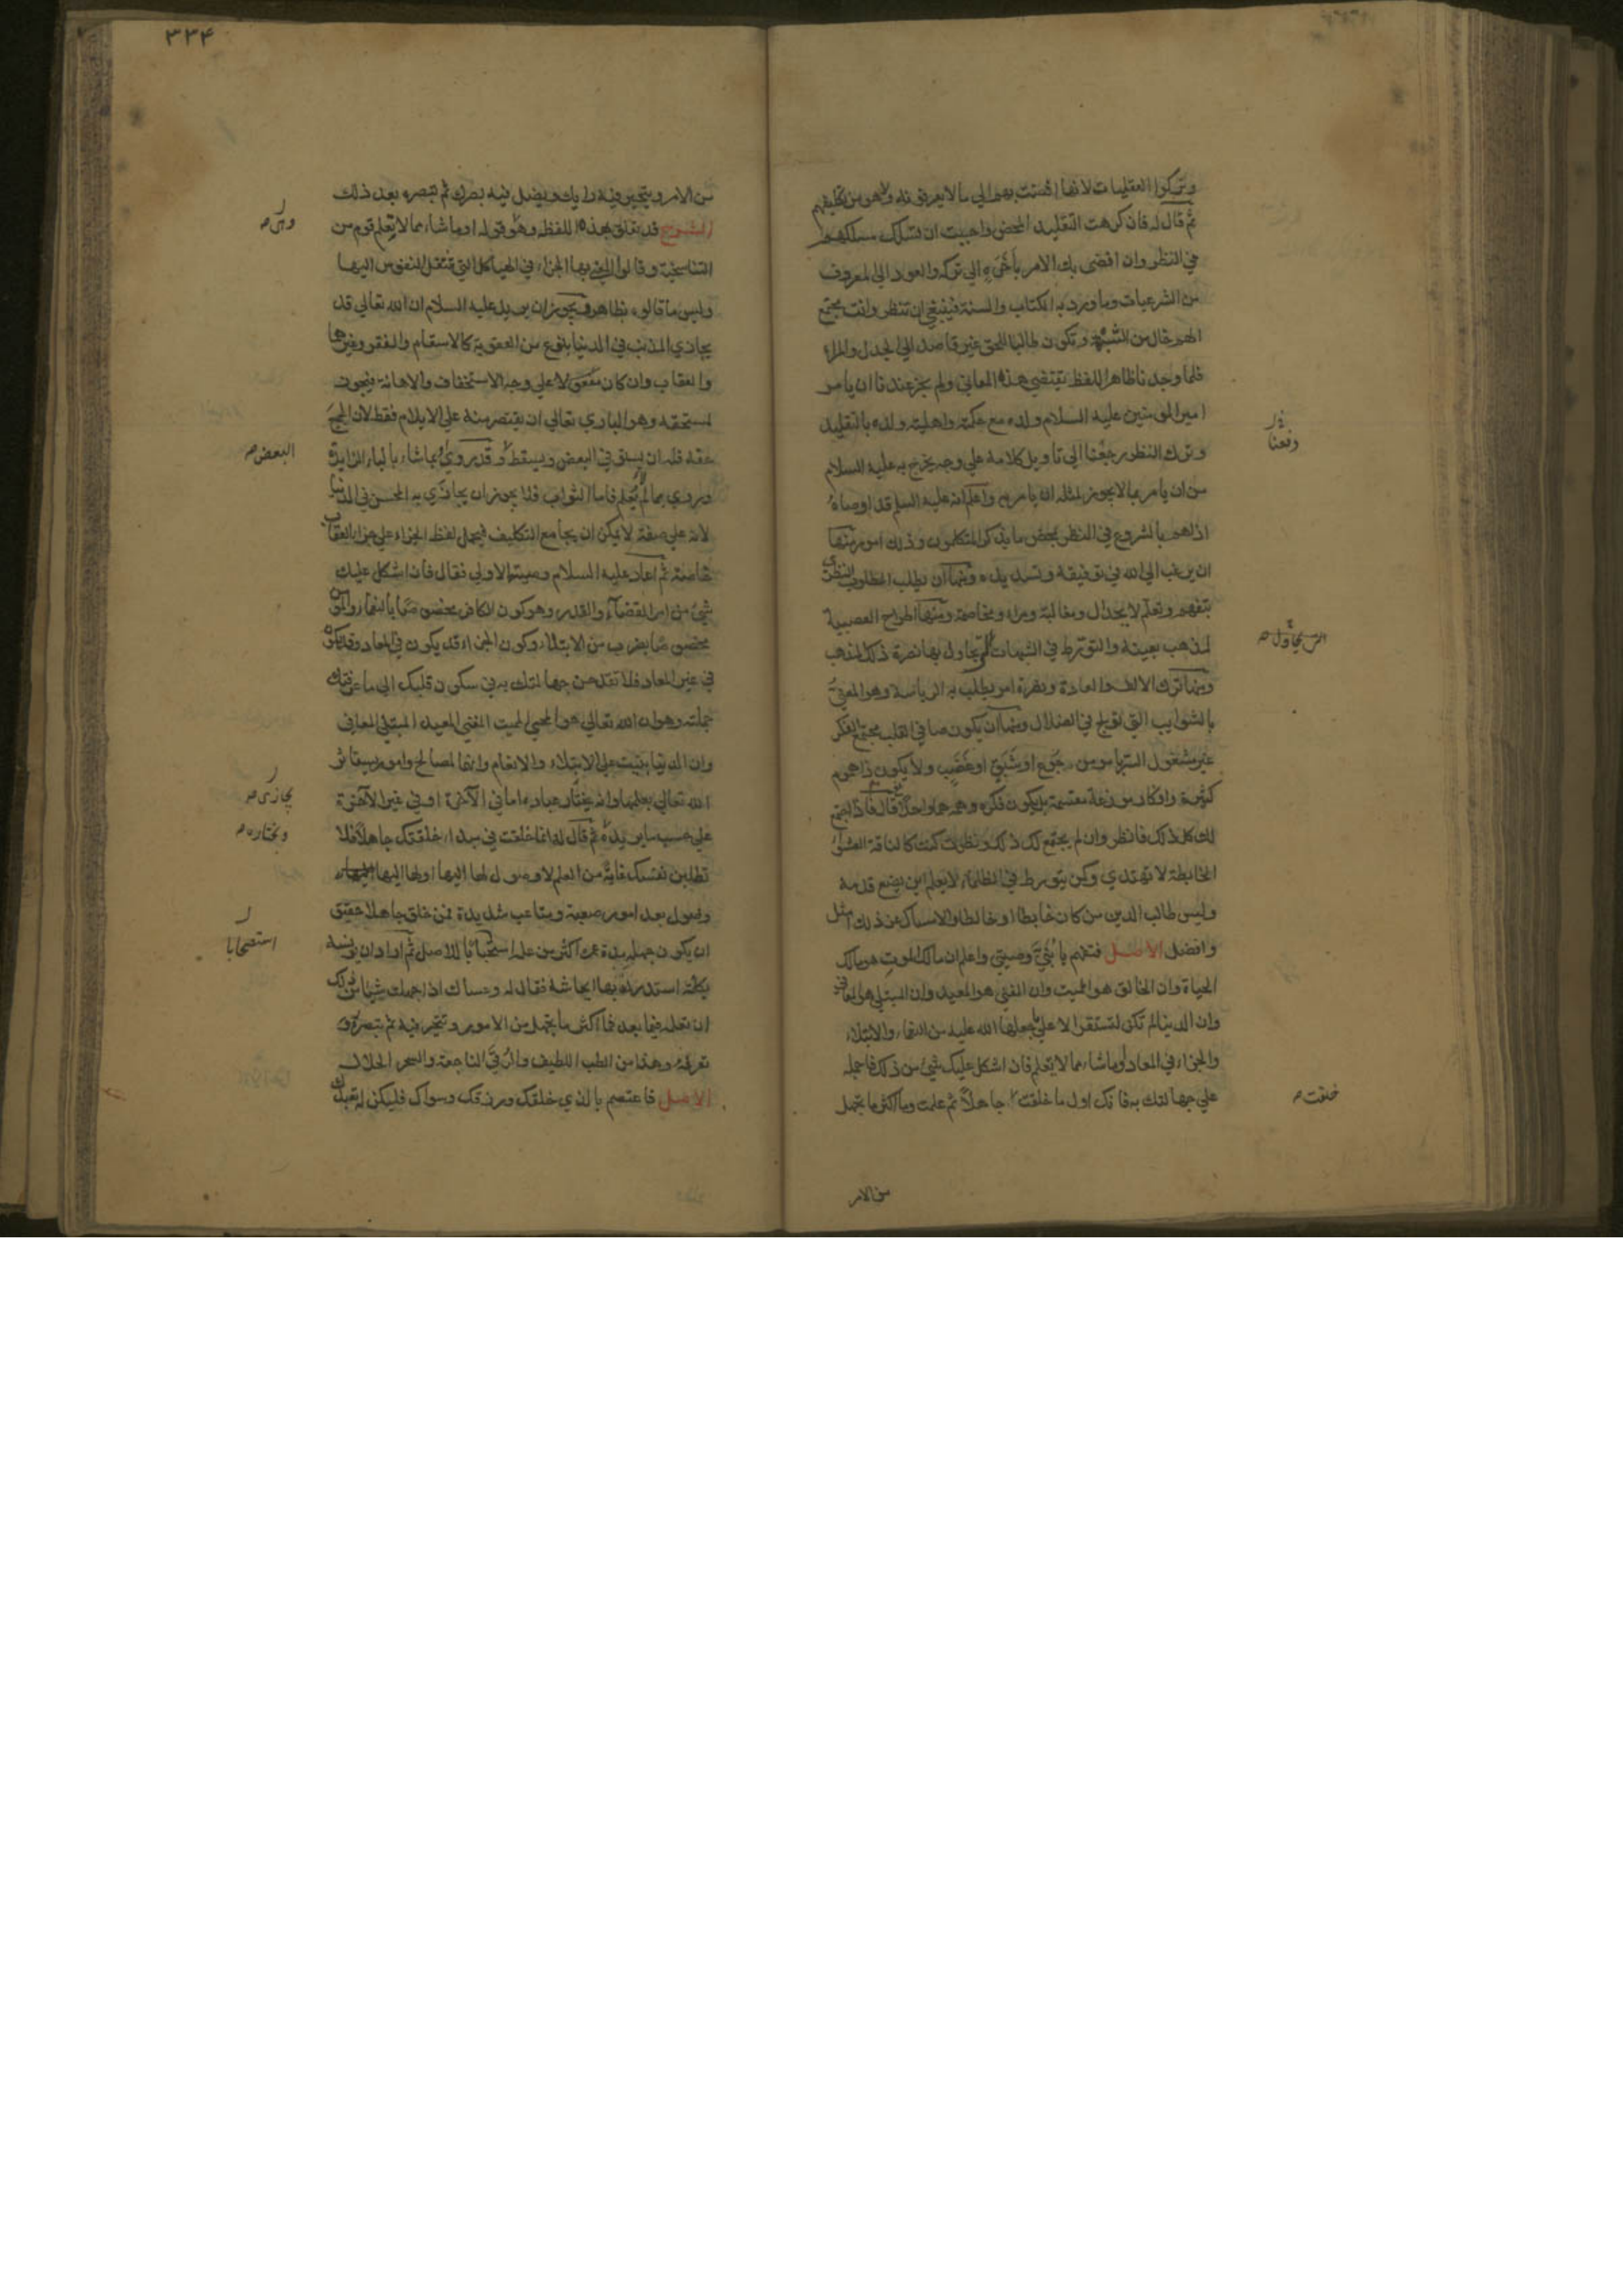 وتركوا العقليات لانها افضت بهم الي ما لا يعرفونه ولا هو من تكليفهم
ثم قال له فان كرهت التقليد المحض واحببت ان تسلك مسلكهم
في النظر وان افضى بك الامر بأخَرَةٍ الي تركه والعود الي المعروف
من الشرعيات وما ورد به الكتاب والسنة فينبغي ان تنظر وانت مجتمع
الهم خال من الشبهة وتكون طالبا للحق غير قاصد الي الجدل والمراء
فلما وجدنا ظاهر اللفظ يقتضي هذه المعاني ولم يجز عندنا ان يامر
امير المومنين عليه السلام ولده مع حكمته واهلية ولده بالتقليد
وترك النظر رجعنا الي تاويل كلامه علي وجه يخرج به عليه السلام
من ان يامر بما لا يجوز لمثله ان يامر به واعلم انه عليه السلم قد اوصاه
اذا هم بالشروع في النظر بمحض ما يذكره المتكلمون وذلك امور منها
ان يرغب الي الله في توفيقه وتسديده ومنها ان يطلب المطلوب النظري
بتفهم وتعلم لا بجدال ومغالبة ومراء ومخاصمة ومنها اطراح العصبية
لمذهب بعينه والتورط في الشبهات التي يحاول بها نصرة ذلك المذهب
ومنها ترك الالف والعادة ونصرة امر يطلب به الرياسة وهو المعنيّ
بالشوايب التي تولج في الضلال ومنها ان يكون صافي القلب مجتمع الفكر
غير مشغول السر بامر من جوع او شبق او غضب ولا يكون ذا هموم
كثيرة وافكار موزعة مقسمة بل يكون فكره وهمه هما واحدا ثم قال فاذا اجتمع
لك كل ذلك فانظر وان لم يجتمع لك ذلك ونظرت كنت كالناقة العشواء
الخابطة لا تهتدي وكمن يتورط في الظلماء لا يعلم اين يضع قدمه
وليس طالب الدين من كان خابطا او خالطا والامساك عن ذلك امثل
وافضل الاصل فتفهم يا بُنَيَّ وصيتي واعلم ان مالك الموت هو مالك
الحياة وان الخالق هو المميت وان المفني هو المعيد وان المبتلي هو المعافي
وان الدنيا لم تكن لتستقر الا علي ما جعلها الله عليه من النعماء والابتلاء
والجزاء في المعاد او ما شاء مما لا يُعلم فان اشكل عليك شيئ من ذلك فاحمله
علي جهالتك به فانك اول ما خلقت جاهلاً ثم علمت وما اكثر ما تجهل
من الامر
دفعنا
التي يحاول صح
خلقت صح
٣٣٤
من الامر ويتحير فيه رايك ويضل فيه بصرك ثم تبصره بعد ذلك
الشرح قد تعلق بهذه اللفظه وهو قوله او ما شاء مما لا يُعلم قوم من
التناسخية وقالوا المعني بها الجزاء في الهياكل التي تنتقل النفوس اليها
وليس ما قالوه بظاهر ويجوز ان يريد عليه السلام ان الله تعالي قد
يجازي المذنب في الدنيا بنوع من العقوبة كالاسقام والفقر وغيرها
والعقاب وان كان مفعولا علي وجه الاستخفاف والاهانة فيجوز
لمستحقه وهو الباري تعالي ان يقتصر منه علي الايلام فقط لان الجميع
حقه فله ان يستوفي البعض ويسقط وقد روي او بما شاء بالباء الزايدة
وروي بما لا يُعلم فاما الثواب فلا يجوز ان يجازي به المحسن في الدنيا
لانه علي صفة لا يمكن ان يجامع التكليف فيحمل لفظ الجزاء علي جزاء العقاب
خاصة ثم اعاد عليه السلام وصيته الاولي فقال فان اشكل عليك
شيئ من امر القضاء والقدر وهو كون الكافر مخصوصا بالنعماء والمومن
مخصوصا بضرب من الابتلاء وكون الجزاء قد يكون في المعاد وقد يكون
في غير المعاد فلا تقدحن جهالتك به في سكون قلبك الي ما عرفتك
جملته وهو ان الله تعالي هو المحيي المميت المفني المعيد المبتلي المعافي
وان الدنيا بنيت علي الابتلاء والانعام وانها لمصالح وامور يستاثر
الله تعالي بعلمها وانه يختار عباده اما في الآخرة او في غير الآخرة
علي حسب ما يريده ثم قال له انما خلقت في مبدا خلقتك جاهلاً فلا
تطلبن نفسك غاية من العلم لا وصول لها اليها او لها اليها
وصول بعد امور صعبة ومتاعب شديدة فمن خلق جاهلا حقيق
ان يكون جهله مدة عمره اكثر من علمه استصحابا للاصل ثم اراد ان يونسه
بكلمة استدرك بها ايحاشه فقال له وعساك اذا جهلت شيئا من ذلك
ان تعلمه فيما بعد فما اكثر ما تجهل من الامور وتتحير فيه ثم تبصره و
تعرفه وهذا من الطب اللطيف والرُقَي الناجعة والسحر الحلال
الاصل فاعتصم بالذي خلقك ورزقك وسواك فليكن له تعبدك
البعض صح
يجازى صح
ويختاره صح
استصحابا